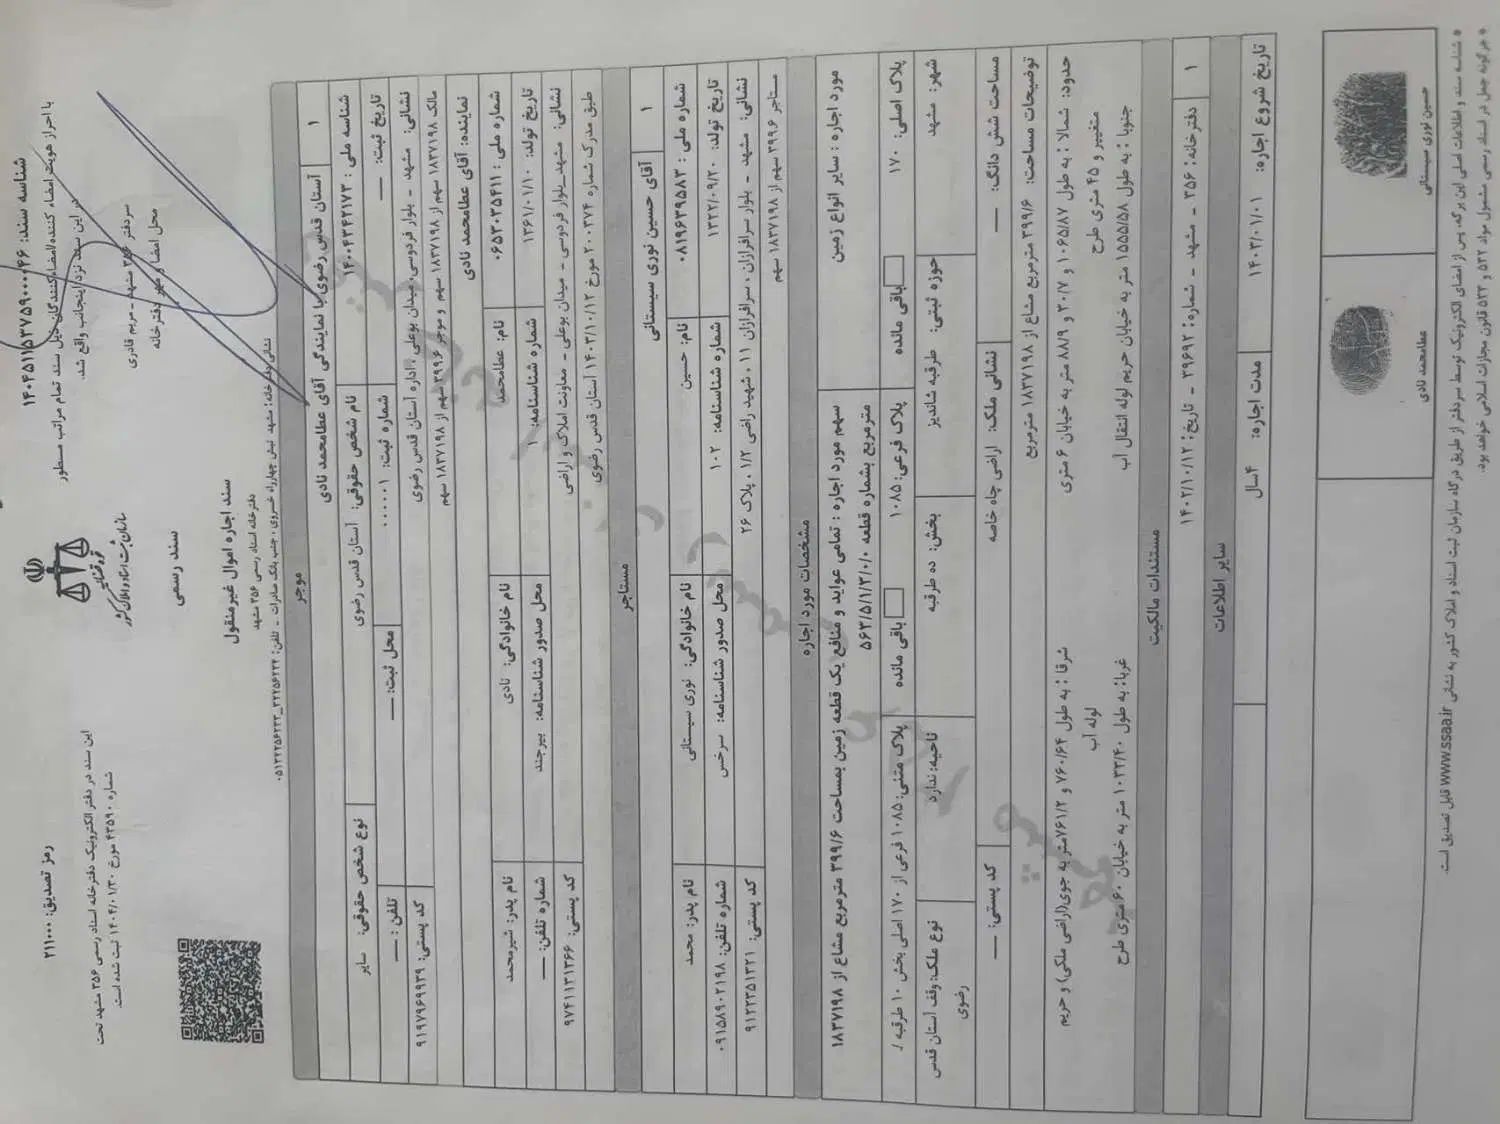 شناسه سند: ۱۴۰۴۵۱۱۵۳۷۵۹۰۰۰۰۴۶
رمز تصدیق: ۲۱۱۰۰۰
با احراز هویت امضاء کننده/امضاءکنندگان ذیل سند تمام مراتب مسطور
در این سند نزد اینجانب واقع شد.
سردفتر ۳۵۶ مشهد - مریم قادری
محل امضا و مهر دفترخانه
قوه قضائیه
سازمان ثبت اسناد و املاک کشور
سند رسمی
این سند در دفتر الکترونیک دفترخانه اسناد رسمی ۳۵۶ مشهد تحت
شماره ۴۳۵۹۰ مورخ ۱۴۰۴/۰۱/۳۰ ثبت شده است.
سند اجاره اموال غیرمنقول
دفترخانه اسناد رسمی ۳۵۶ مشهد
نشانی دفترخانه: مشهد نبش چهارراه خسروی، جنب بانک صادرات - تلفن: ۳۲۲۵۶۲۳۴_۰۵۱۳۲۲۵۶۲۳۳
موجر
۱ آستان قدس رضوی با نمایندگی آقای عطامحمد نادی
شناسه ملی: ۱۴۰۰۴۳۴۲۱۷۳ نام شخص حقوقی: آستان قدس رضوی نوع شخص حقوقی: سایر
تاریخ ثبت: — شماره ثبت: ۱۰۰۰۰۰ محل ثبت: — تلفن: —
نشانی: مشهد - بلوار فردوسی، میدان بوعلی، اداره آستان قدس رضوی کد پستی: ۹۱۹۷۹۶۹۹۳۹
مالک ۱۸۳۷۱۹۸ سهم از ۱۸۳۷۱۹۸ سهم و موجر ۳۹۹.۶ سهم از ۱۸۳۷۱۹۸ سهم
نماینده: آقای عطامحمد نادی
شماره ملی: ۰۶۵۳۰۳۵۴۱۱ نام: عطامحمد نام خانوادگی: نادی نام پدر: شیرمحمد
تاریخ تولد: ۱۳۶۱/۰۱/۱۰ شماره شناسنامه: ۱ محل صدور شناسنامه: بیرجند شماره تلفن: —
نشانی: مشهد_بلوار فردوسی - میدان بوعلی - معاونت املاک و اراضی کد پستی: ۹۷۴۱۱۳۱۳۶۶
طبق مدرک شماره ۲۰۰۳۷۴ مورخ ۱۴۰۳/۱۰/۱۲ آستان قدس رضوی
مستاجر
۱ آقای حسین نوری سیستانی
شماره ملی: ۰۸۱۹۶۳۹۵۸۳ نام: حسین نام خانوادگی: نوری سیستانی نام پدر: محمد
تاریخ تولد: ۱۳۲۲/۰۹/۲۰ شماره شناسنامه: ۱۰۲ محل صدور شناسنامه: سرخس شماره تلفن: ۰۹۱۵۸۹۰۲۱۹۸
نشانی: مشهد - بلوار سرافرازان، سرافرازان ۱۱، شهید راضی ۱/۲، پلاک ۲۶ کد پستی: ۹۱۲۲۳۵۱۳۲۱
مستاجر ۳۹۹.۶ سهم از ۱۸۳۷۱۹۸ سهم
مشخصات مورد اجاره
مورد اجاره: سایر انواع زمین سهم مورد اجاره: تمامی عواید و منافع یک قطعه زمین بمساحت ۳۹۹/۶ مترمربع مشاع از ۱۸۳۷۱۹۸
مترمربع بشماره قطعه ۵۶۳/۵/۱/۳/۰/۰
پلاک اصلی: ۱۷۰ باقی مانده پلاک فرعی: ۱۰۸۵ باقی مانده پلاک متنی: ۱۰۸۵ فرعی از ۱۷۰ اصلی بخش ۱۰ طرقبه /
شهر: مشهد حوزه ثبتی: طرقبه شاندیز بخش: ده طرقبه ناحیه: ندارد نوع ملک: وقف آستان قدس
رضوی
مساحت شش دانگ: — نشانی ملک: اراضی چاه خاصه کد پستی: —
توضیحات مساحت: ۳۹۹/۶ مترمربع مشاع از ۱۸۳۷۱۹۸ مترمربع
حدود: شمالا: به طول ۱۰۶۵/۸۷ و ۲۰/۷ و ۸۸/۹ متر به خیابان ۶ متری
متغییر و ۴۵ متری طرح
شرقا: به طول ۷۶۰/۶۴ و ۷۶۱/۲متر به جوی(اراضی ملکی) و حریم
لوله آب
جنوبا: به طول ۱۵۵۵/۵۸ متر به خیابان حریم لوله انتقال آب
غربا: به طول ۱۰۳۳/۴۰ متر به خیابان ۶۰ متری طرح
مستندات مالکیت
۱ دفترخانه: ۳۵۶ - مشهد - شماره: ۳۹۶۹۲ - تاریخ: ۱۴۰۲/۱۰/۱۲
سایر اطلاعات
تاریخ شروع اجاره: ۱۴۰۳/۰۱/۰۱ مدت اجاره: ۴سال
حسین نوری سیستانی
عطامحمد نادی
* شناسه سند و اطلاعات اصلی این برگه، پس از امضای الکترونیک توسط سردفتر از طریق درگاه سازمان ثبت اسناد و املاک کشور به نشانی www.ssaa.ir قابل تصدیق است.
* هرگونه جعل در اسناد رسمی مشمول مواد ۵۳۲ و ۵۳۳ قانون مجازات اسلامی خواهد بود.